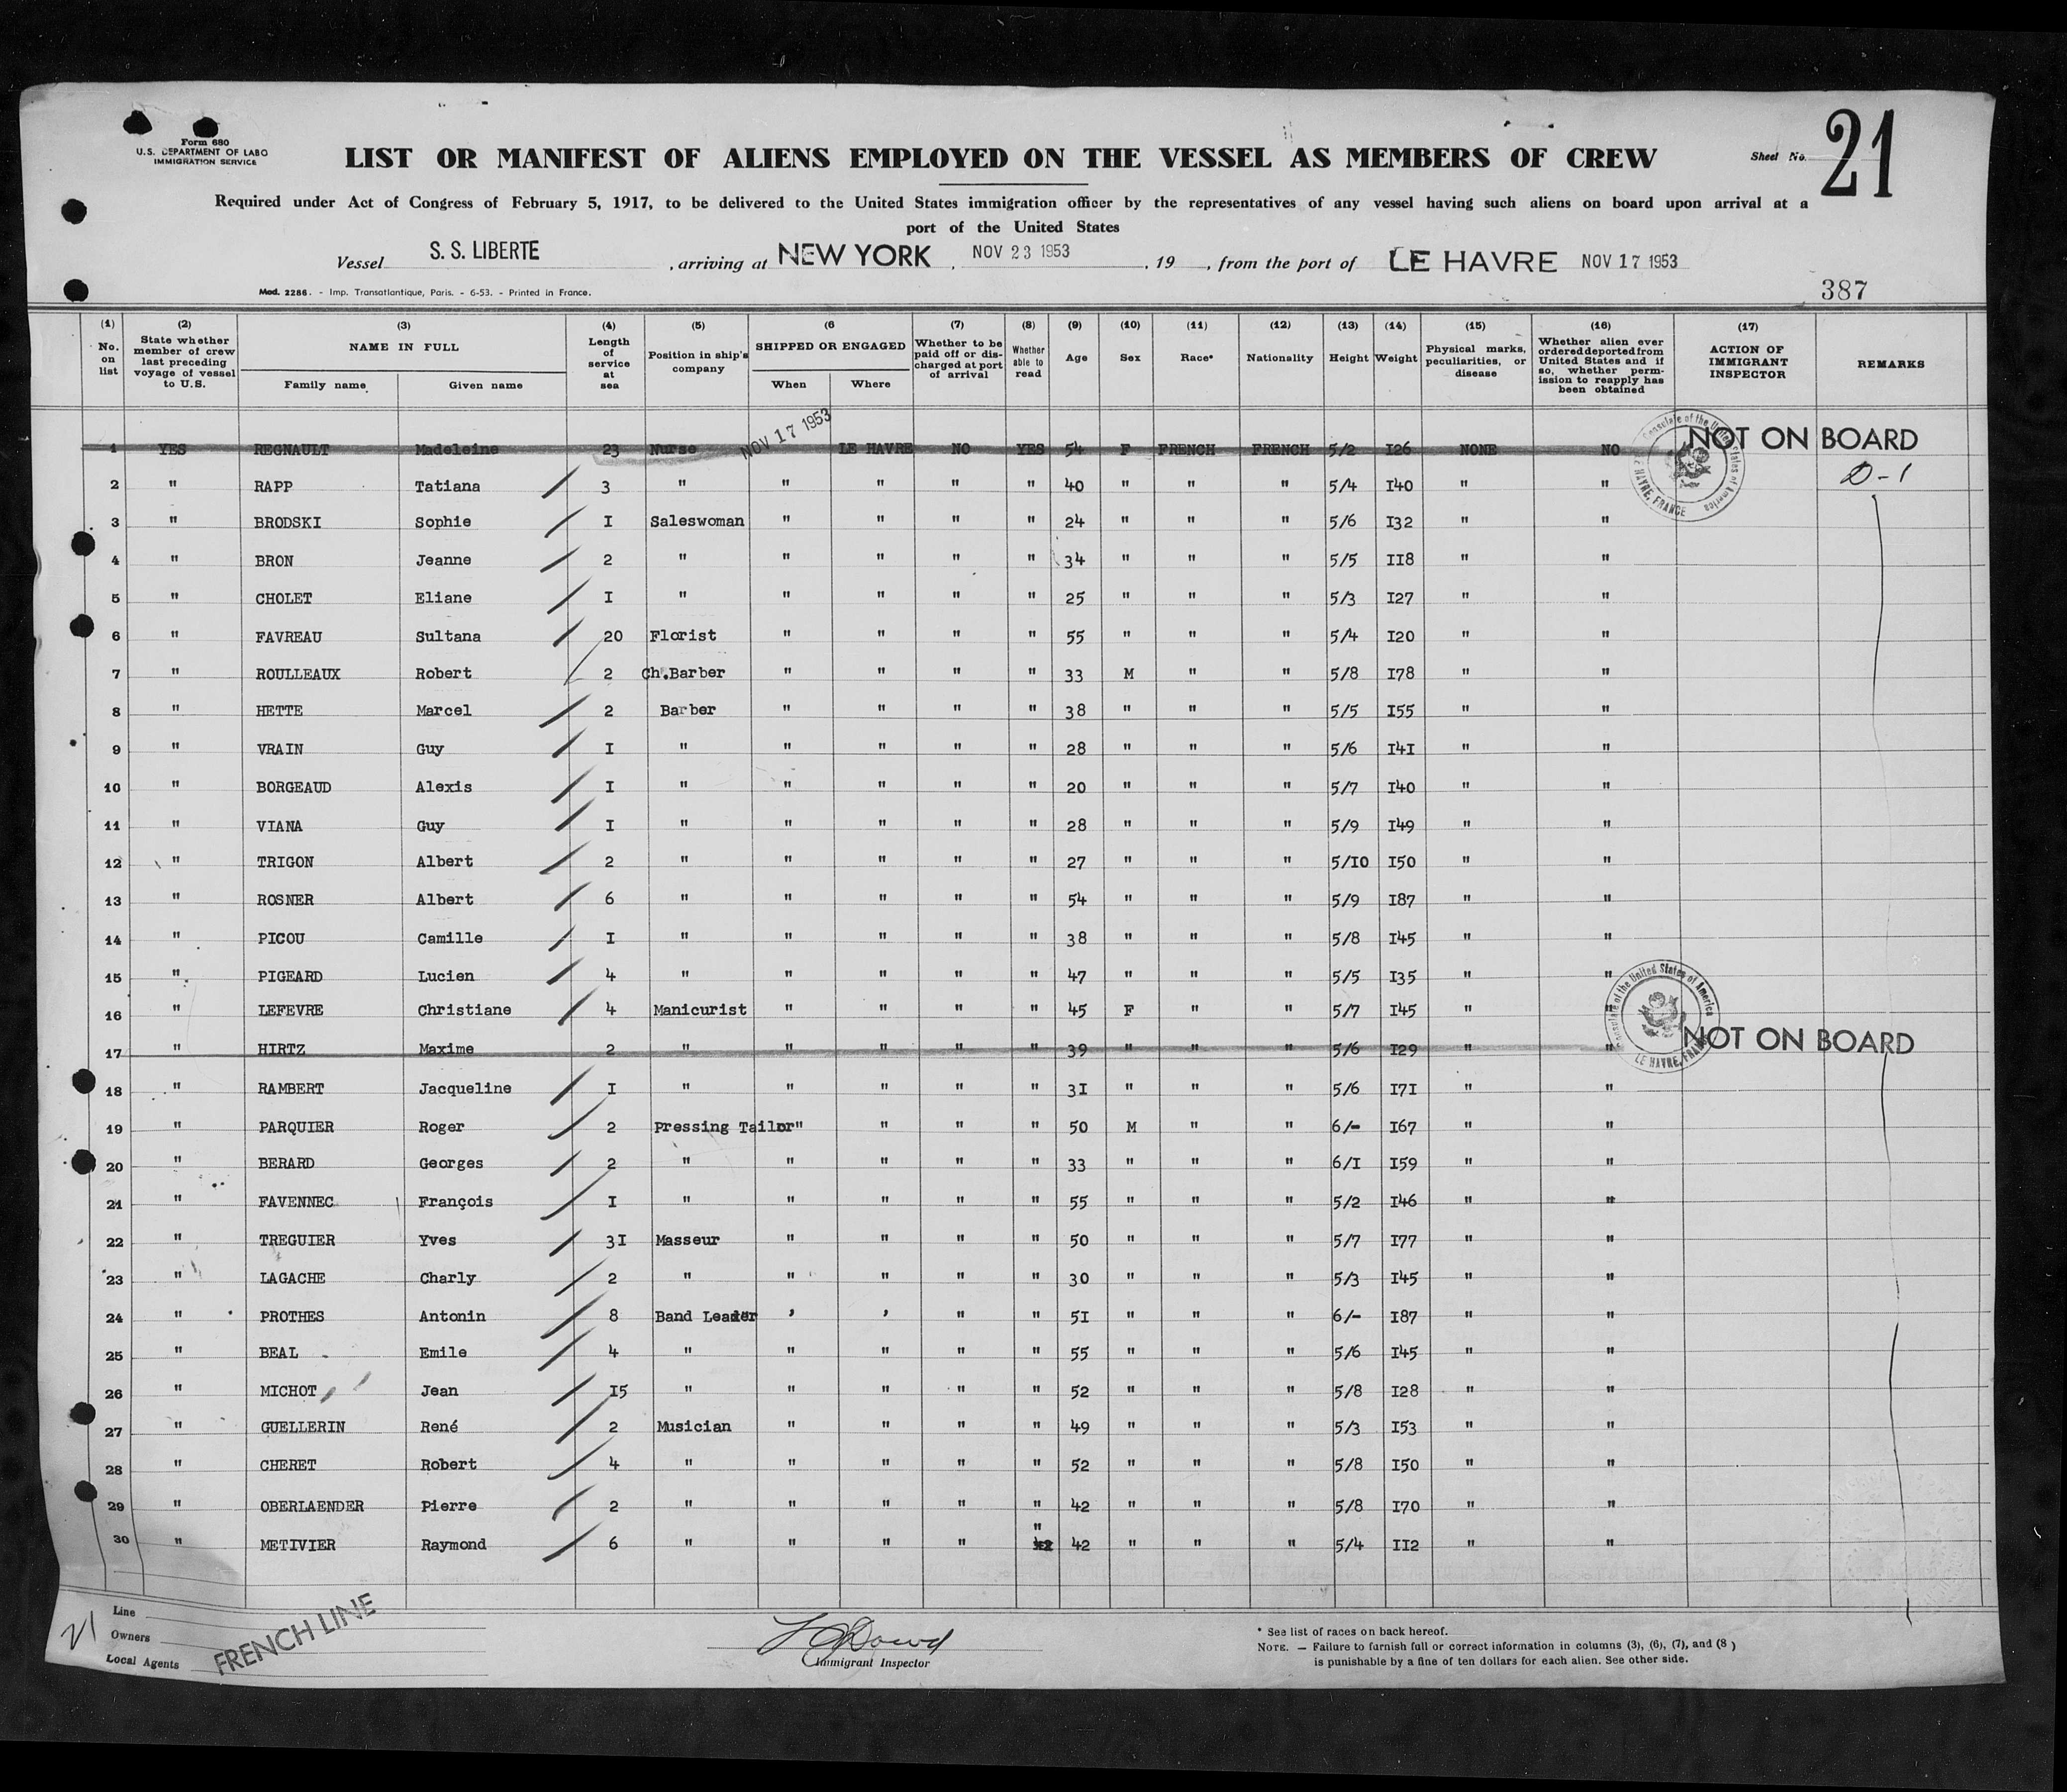 Form 680
U.S. DEPARTMENT OF LABO
IMMIGRATION SERVICE
LIST OR MANIFEST OF ALIENS EMPLOYED ON THE VESSEL AS MEMBERS OF CREW
Sheet No. 21
Required under Act of Congress of February 5, 1917, to be delivered to the United States immigration officer by the representatives of any vessel having such aliens on board upon arrival at a
port of the United States
Vessel S. S. LIBERTE , arriving at NEW YORK , NOV 23 1953 , 19 , from the port of LE HAVRE NOV 17 1953
Mod. 2286. - Imp. Transatlantique, Paris. - 6-53. - Printed in France.
387
(1) No. on list
(2) State whether member of crew last preceding voyage of vessel to U.S.
(3) NAME IN FULL Family name Given name
(4) Length of service at sea
(5) Position in ship's company
(6 SHIPPED OR ENGAGED When Where
(7) Whether to be paid off or discharged at port of arrival
(8) Whether able to read
(9) Age
(10) Sex
(11) Race*
(12) Nationality
(13) Height
(14) Weight
(15) Physical marks, peculiarities, or disease
(16) Whether alien ever ordered deported from United States and if so, whether permission to reapply has been obtained
(17) ACTION OF IMMIGRANT INSPECTOR
REMARKS
1 YES REGNAULT Madeleine 23 Nurse NOV 17 1953 LE HAVRE NO YES 54 F FRENCH FRENCH 5/2 I26 NONE NO NOT ON BOARD
2 " RAPP Tatiana 3 " " " " " 40 " " " 5/4 I40 " " D-1
3 " BRODSKI Sophie I Saleswoman " " " " 24 " " " 5/6 I32 " "
4 " BRON Jeanne 2 " " " " " 34 " " " 5/5 II8 " "
5 " CHOLET Eliane I " " " " " 25 " " " 5/3 I27 " "
6 " FAVREAU Sultana 20 Florist " " " " 55 " " " 5/4 I20 " "
7 " ROULLEAUX Robert 2 Ch.Barber " " " " 33 M " " 5/8 I78 " "
8 " HETTE Marcel 2 Barber " " " " 38 " " " 5/5 I55 " "
9 " VRAIN Guy I " " " " " 28 " " " 5/6 I4I " "
10 " BORGEAUD Alexis I " " " " " 20 " " " 5/7 I40 " "
11 " VIANA Guy I " " " " " 28 " " " 5/9 I49 " "
12 " TRIGON Albert 2 " " " " " 27 " " " 5/I0 I50 " "
13 " ROSNER Albert 6 " " " " " 54 " " " 5/9 I87 " "
14 " PICOU Camille I " " " " " 38 " " " 5/8 I45 " "
15 " PIGEARD Lucien 4 " " " " " 47 " " " 5/5 I35 " "
16 " LEFEVRE Christiane 4 Manicurist " " " " 45 F " " 5/7 I45 " "
17 " HIRTZ Maxime 2 " " " " " 39 " " " 5/6 I29 " " NOT ON BOARD
18 " RAMBERT Jacqueline I " " " " " 3I " " " 5/6 I7I " "
19 " PARQUIER Roger 2 Pressing Tailor " " " " 50 M " " 6/- I67 " "
20 " BERARD Georges 2 " " " " " 33 " " " 6/I I59 " "
21 " FAVENNEC François I " " " " " 55 " " " 5/2 I46 " "
22 " TREGUIER Yves 3I Masseur " " " " 50 " " " 5/7 I77 " "
23 " LAGACHE Charly 2 " " " " " 30 " " " 5/3 I45 " "
24 " PROTHES Antonin 8 Band Leader ' ' " " 5I " " " 6/- I87 " "
25 " BEAL Emile 4 " " " " " 55 " " " 5/6 I45 " "
26 " MICHOT Jean I5 " " " " " 52 " " " 5/8 I28 " "
27 " GUELLERIN René 2 Musician " " " " 49 " " " 5/3 I53 " "
28 " CHERET Robert 4 " " " " " 52 " " " 5/8 I50 " "
29 " OBERLAENDER Pierre 2 " " " " " 42 " " " 5/8 I70 " "
30 " METIVIER Raymond 6 " " " " " 42 " " " 5/4 II2 " "
Consulate of the United States of America
LE HAVRE, FRANCE
Consulate of the United States of America
LE HAVRE, FRANCE
21
Line
Owners
Local Agents
FRENCH LINE
Immigrant Inspector
* See list of races on back hereof.
NOTE. — Failure to furnish full or correct information in columns (3), (6), (7), and (8 )
is punishable by a fine of ten dollars for each alien. See other side.